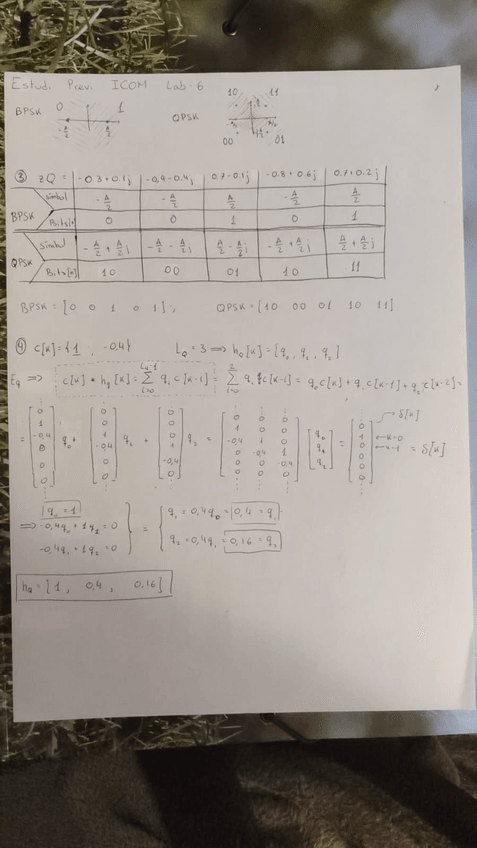 Estudi Previ ICOM Lab-6
BPSK 0 1 QPSK 10 11
-A/2 A/2
00 01
③ zQ = -0.3+0.1j -0,4-0.4j 0,7-0.1j -0.8+0.6j 0.7+0.2j
BPSK símbol -A/2 -A/2 A/2 -A/2 A/2
Bits[n] 0 0 1 0 1
QPSK símbol -A/2+A/2j -A/2-A/2j A/2-A/2j -A/2+A/2j A/2+A/2j
Bits[n] 10 00 01 10 11
BPSK = [0 0 1 0 1]; QPSK = [10 00 01 10 11]
④ c[k]={1, -0,4} L_Q = 3 ⟹ h_Q[k] = [q₀, q₁, q₂]
Eq ⟹ c[k] * h_q[k] = Σ q_i c[k-i] = Σ q_i c[k-i] = q₀c[k]+q₁c[k-1]+q₂c[k-2]=
= [0 1 -0,4 0 0 0] q₀ + [0 0 1 -0,4 0 0] q₁ + [0 0 0 1 -0,4 0] q₂ =
[0 0 0
1 0 0
-0,4 1 0
0 -0,4 1
0 0 -0,4
0 0 0] [q₀ q₁ q₂] = [0 1 0 0 0 0] = δ[k]
q₀ = 1
⟹ -0,4q₀ + 1q₁ = 0 = q₁ = 0,4q₀ = 0,4 = q₁
-0,4q₁ + 1q₂ = 0 q₂ = 0,4q₁ = 0,16 = q₂
h_Q = [1, 0,4, 0,16]